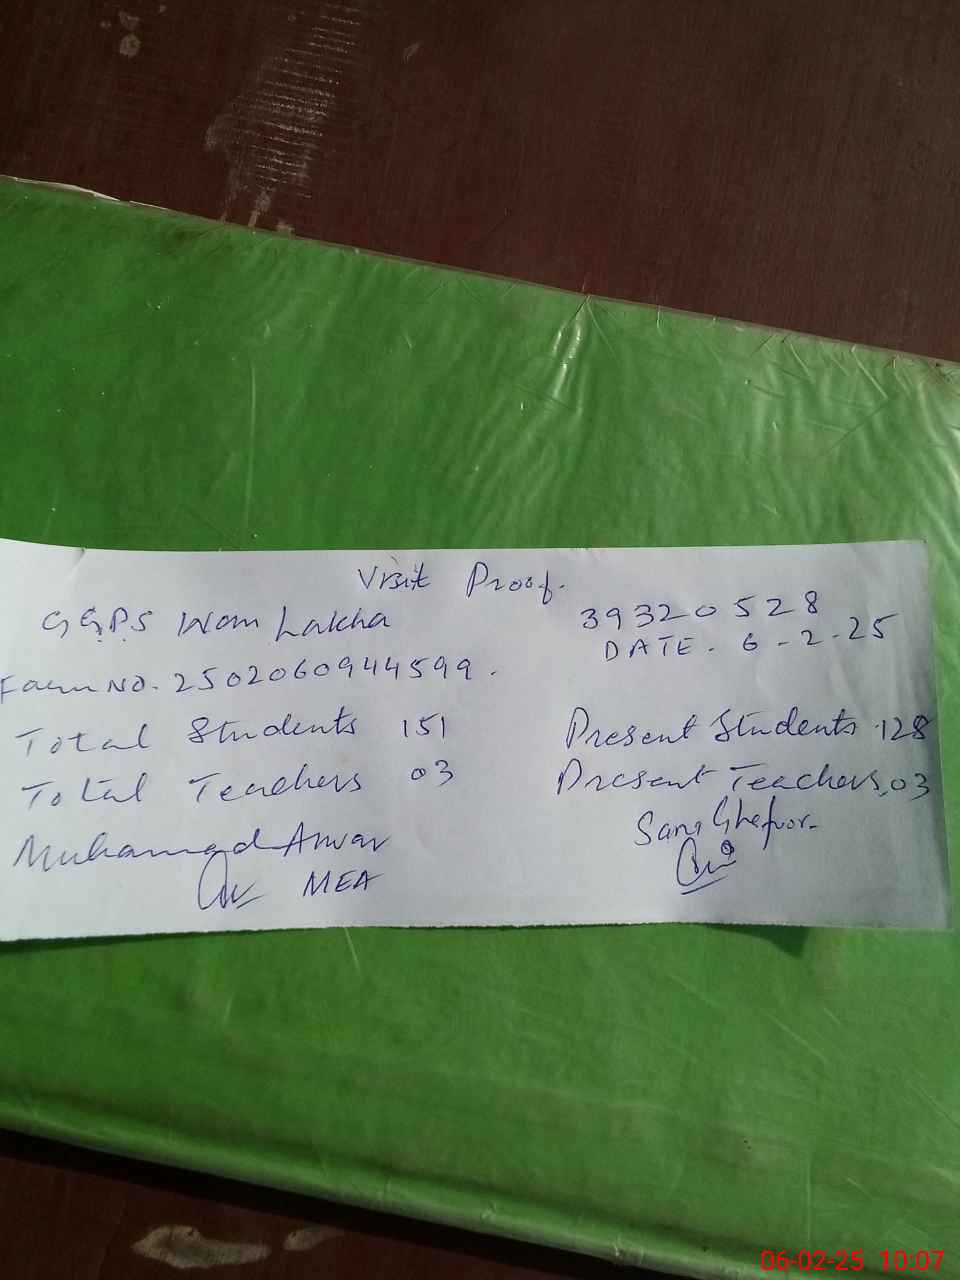 Visit Proof.
GGPS Wam Lakha
39320528
DATE. 6-2-25
Form No. 2502060944599.
Total Students 151
Present Students 128
Total Teachers 03
Present Teachers 03
Muhammad Anwar
MEA
06-02-25 10:07